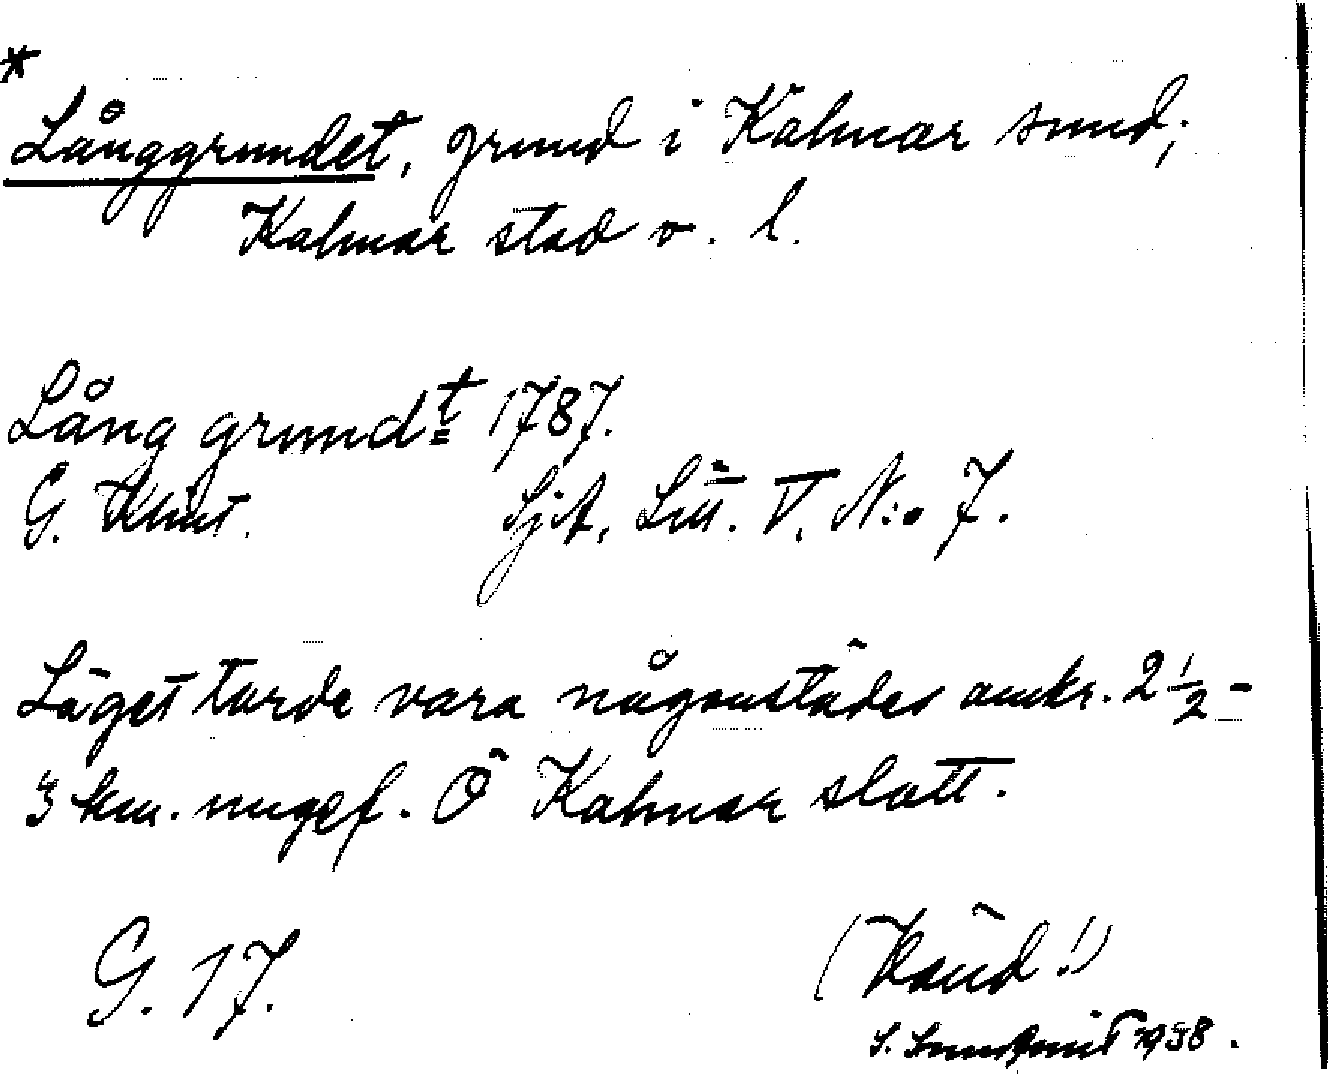 *
Långgrundet, grund i Kalmar sund;
Kalmar stad o. l.
Lång grundt 1787.
G. Klint. SjA, Litt. V. N:o 7.
Läget torde vara någonstädes omkr. 2 1/2 -
3 km. ungef. Ö Kalmar slott.
G. 17. (Vänd!)
S. 1938.